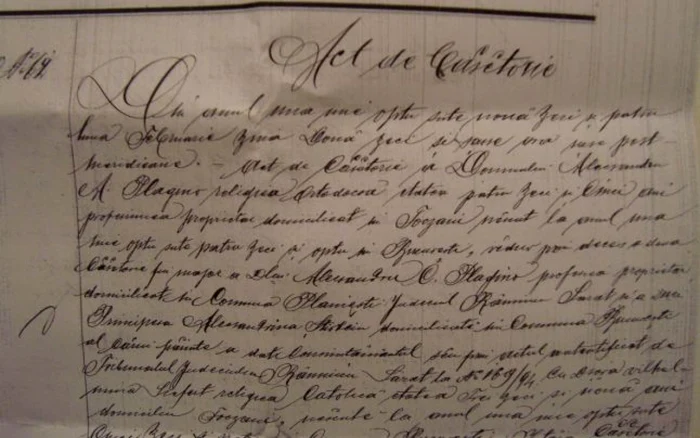 No 64
Act de Căsătorie
Din anul una mie optu sute nouă zeci și patru
luna Februarie ziua Două zeci si sase ora sase post
meridiane. Act de Căsătorie a Domnului Alecsandru
A. Plagino religiea Ortodocsă etatea patru zeci și cinci ani
profesiunea proprietar domiciliat în Focșani născut la anul una
mie optu sute patru zeci și optu în București, văduv prin deces a doua
Căsătorie fiu major a Dlui Alecsandru Plagino profesia proprietar
domiciliat în Comuna Plainești Județul Râmnicu Sarat și a
Principesa Alecsandrina Știrbein domiciliată în Comuna București
al cărui părinte a datu Consimtimentul său prin actul autentificat de
Tribunalul Județului Râmnicu Sarat la No 169/94. cu
religiea Catolică etatea trei zeci și nouă ani
domiciliu Focșani, născute la anul una mie optu sute